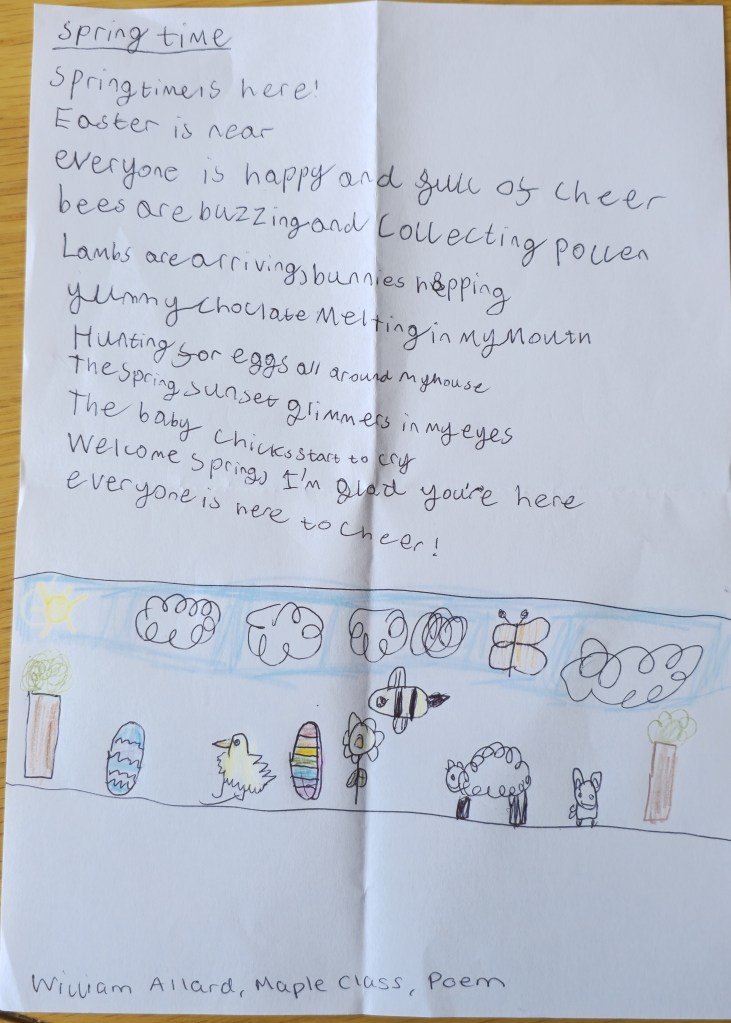 Spring time
Springtime is here!
Easter is near
everyone is happy and full of cheer
bees are buzzing and Collecting pollen
Lambs are arriving, bunnies hopping
yummy choclate Melting in My Mouth
Hunting for eggs all around My house
The spring sunset glimmers in my eyes
The baby chicks start to cry
Welcome spring, I'm glad you're here
everyone is here to cheer!
William Allard, Maple Class, Poem